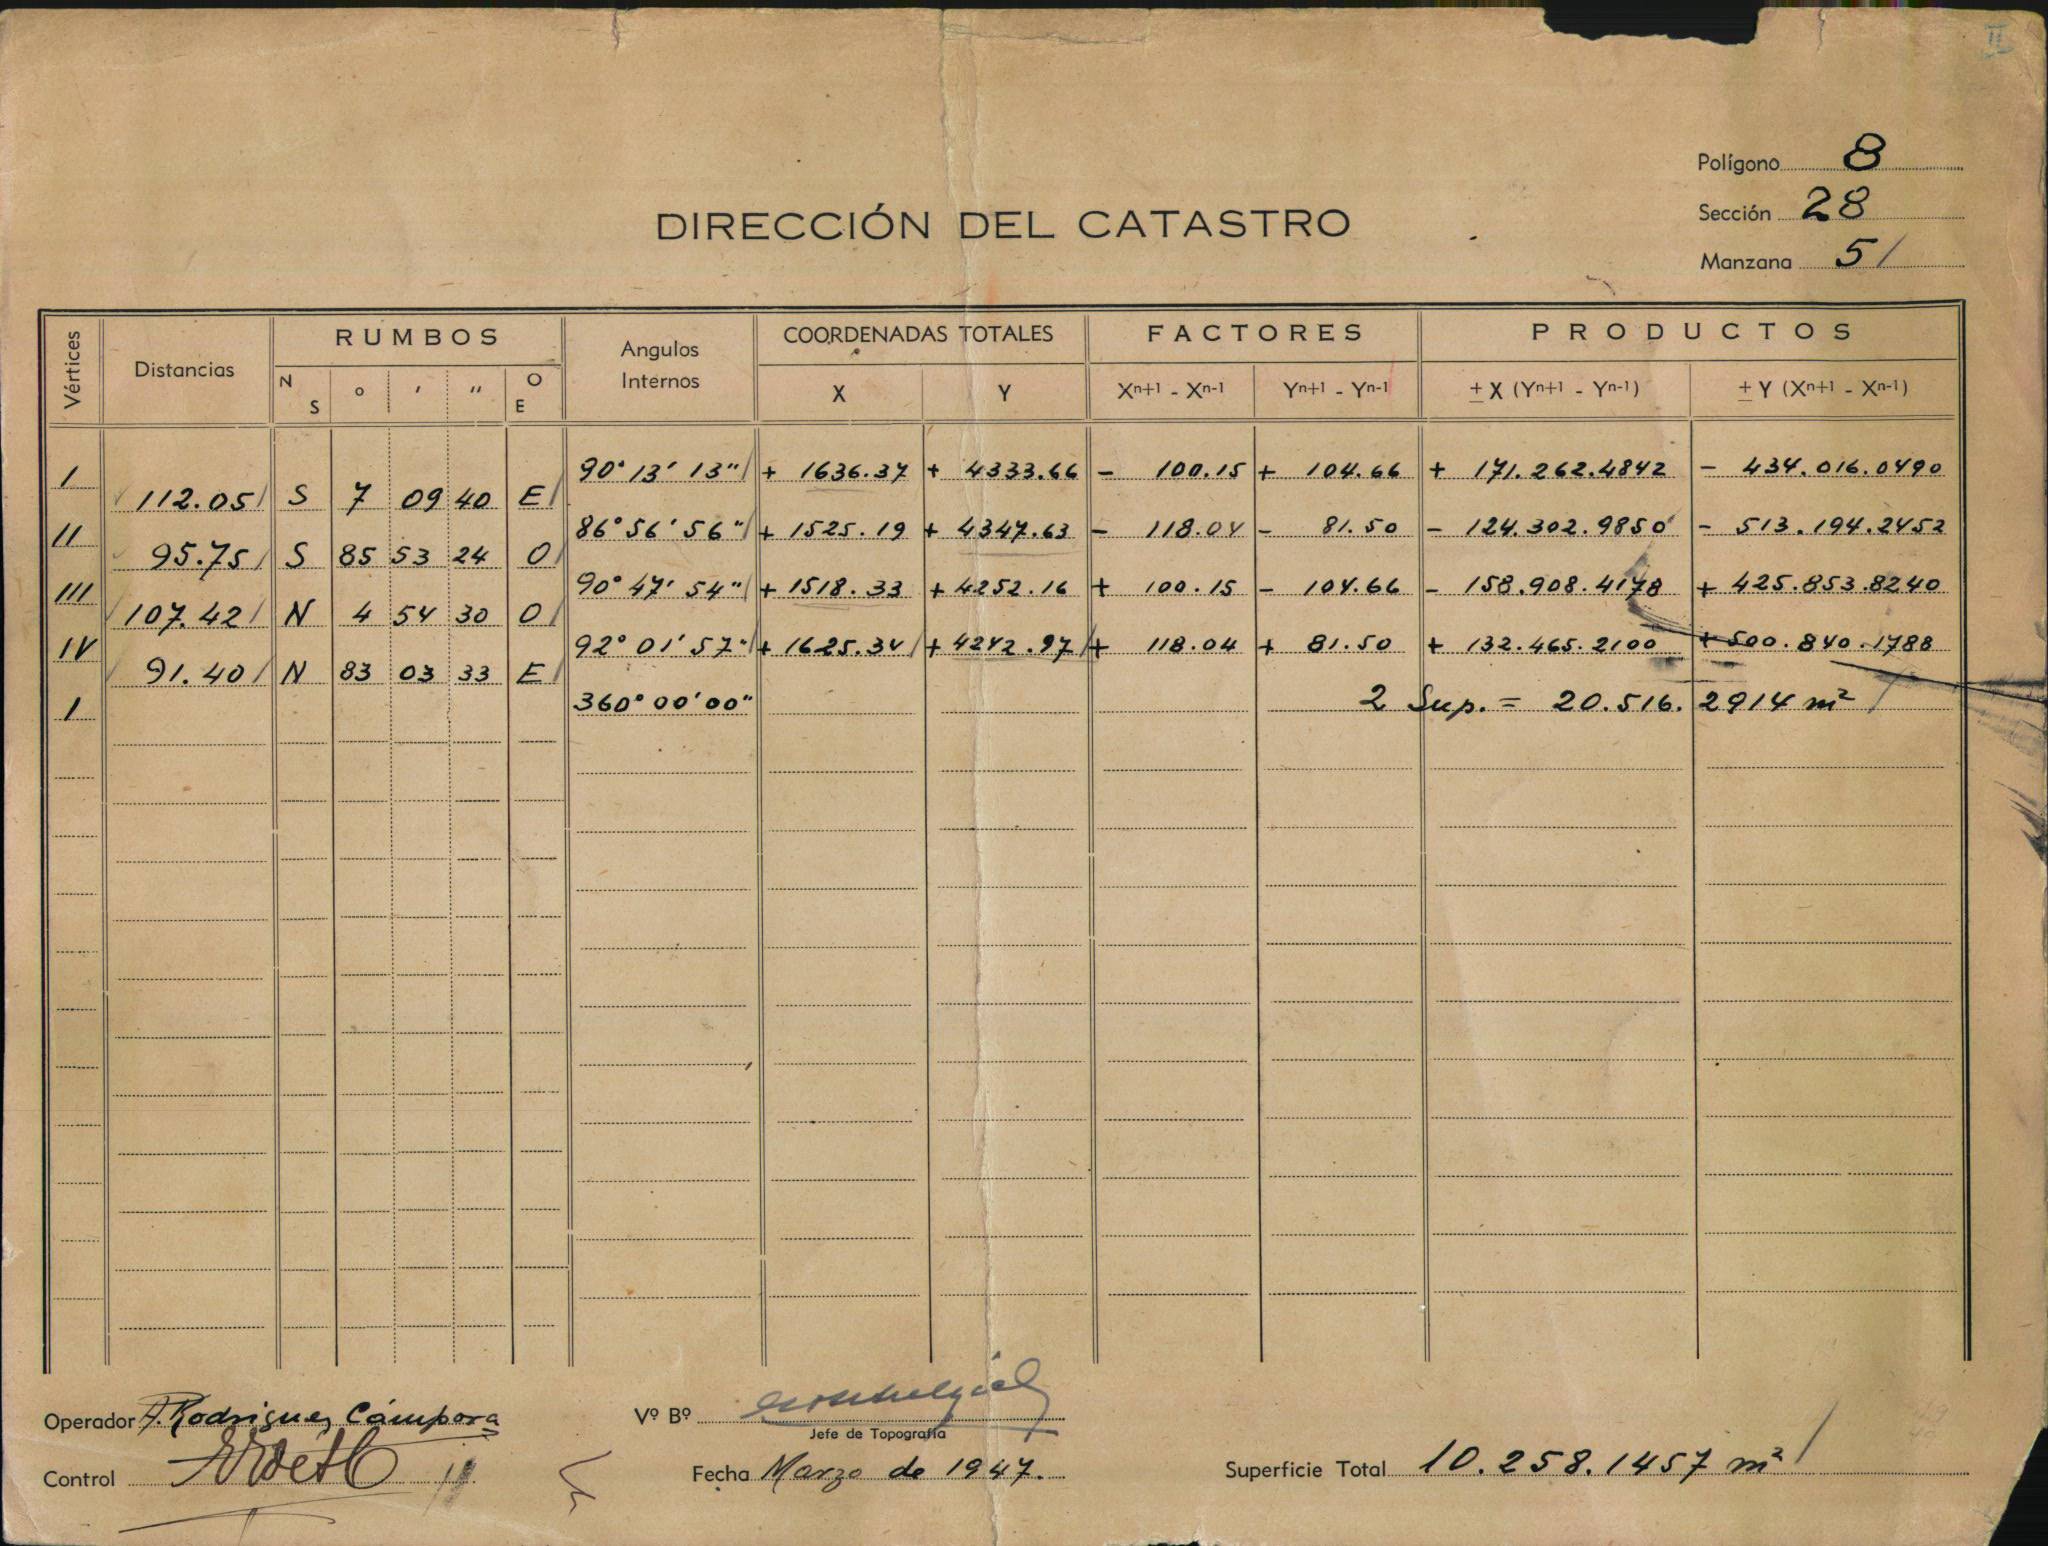 II
Polígono 8
Sección 28
Manzana 5
DIRECCIÓN DEL CATASTRO
Vértices Distancias RUMBOS Angulos Internos COORDENADAS TOTALES FACTORES PRODUCTOS
N S ° ' '' O E X Y Xn+1 - Xn-1 Yn+1 - Yn-1 ± X (Yn+1 - Yn-1) ± Y (Xn+1 - Xn-1)
I 90° 13' 13" + 1636.37 + 4333.66 - 100.15 + 104.66 + 171.262.4842 - 434.016.0490
112.05 S 7 09 40 E
II 86° 56' 56" + 1525.19 + 4347.63 - 118.04 - 81.50 - 124.302.9850 - 513.194.2452
95.75 S 85 53 24 O
III 90° 47' 54" + 1518.33 + 4252.16 + 100.15 - 104.66 - 158.908.4178 + 425.853.8240
107.42 N 4 54 30 O
IV 92° 01' 57" + 1625.34 + 4242.97 + 118.04 + 81.50 + 132.465.2100 + 500.840.1788
91.40 N 83 03 33 E
I 360° 00' 00" 2 Sup. = 20.516.2914 m²
Operador A. Rodriguez Cámpora Vº Bº
Jefe de Topografía
Control Fecha Marzo de 1947. Superficie Total 10.258.1457 m²